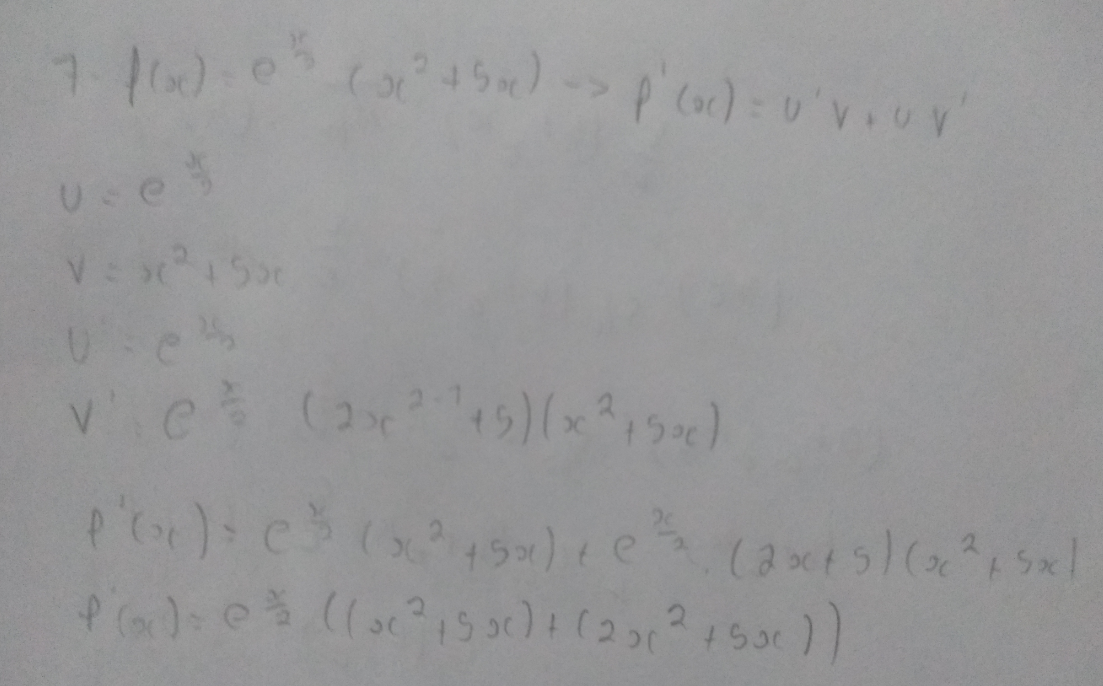 7. f(x) = e^{x/2} (x^2 + 5x) -> f'(x) = u'v + u v'
u = e^{x/2}
v = x^2 + 5x
u' = e^{x/2}
v' = e^{x/2} (2x^{2-1} + 5)(x^2 + 5x)
f'(x) = e^{x/2} (x^2 + 5x) + e^{x/2} . (2x + 5)(x^2 + 5x)
f'(x) = e^{x/2} ((x^2 + 5x) + (2x^2 + 5x))